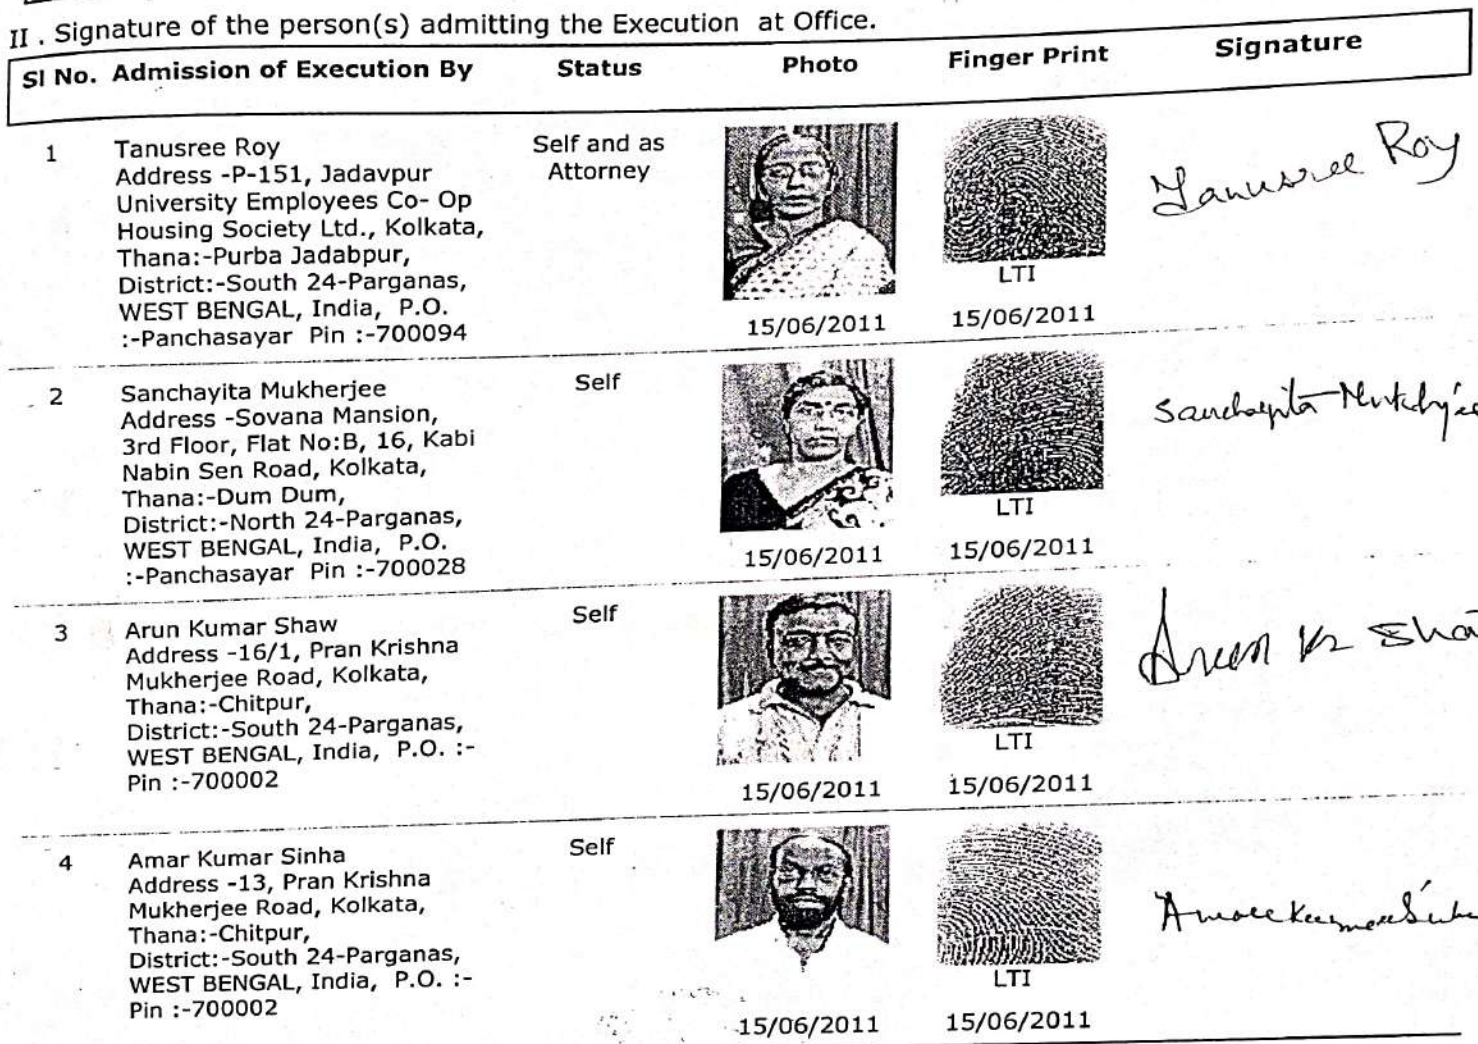 II . Signature of the person(s) admitting the Execution at Office.
Sl No. Admission of Execution By Status Photo Finger Print Signature
1 Tanusree Roy Self and as
Address -P-151, Jadavpur Attorney
University Employees Co- Op
Housing Society Ltd., Kolkata,
Thana:-Purba Jadabpur,
District:-South 24-Parganas,
WEST BENGAL, India, P.O.
:-Panchasayar Pin :-700094
LTI
15/06/2011 15/06/2011
Tanusree Roy
2 Sanchayita Mukherjee Self
Address -Sovana Mansion,
3rd Floor, Flat No:B, 16, Kabi
Nabin Sen Road, Kolkata,
Thana:-Dum Dum,
District:-North 24-Parganas,
WEST BENGAL, India, P.O.
:-Panchasayar Pin :-700028
LTI
15/06/2011 15/06/2011
Sanchayita Mukherjee
3 Arun Kumar Shaw Self
Address -16/1, Pran Krishna
Mukherjee Road, Kolkata,
Thana:-Chitpur,
District:-South 24-Parganas,
WEST BENGAL, India, P.O. :-
Pin :-700002
LTI
15/06/2011 15/06/2011
Arun Kr Sha
4 Amar Kumar Sinha Self
Address -13, Pran Krishna
Mukherjee Road, Kolkata,
Thana:-Chitpur,
District:-South 24-Parganas,
WEST BENGAL, India, P.O. :-
Pin :-700002
LTI
15/06/2011 15/06/2011